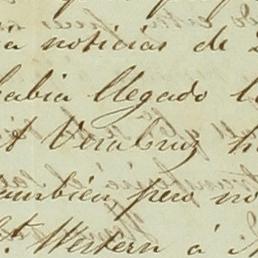 ia noticias de
habia llegado
t Vera Cruz
tambien pero no
St. Western á